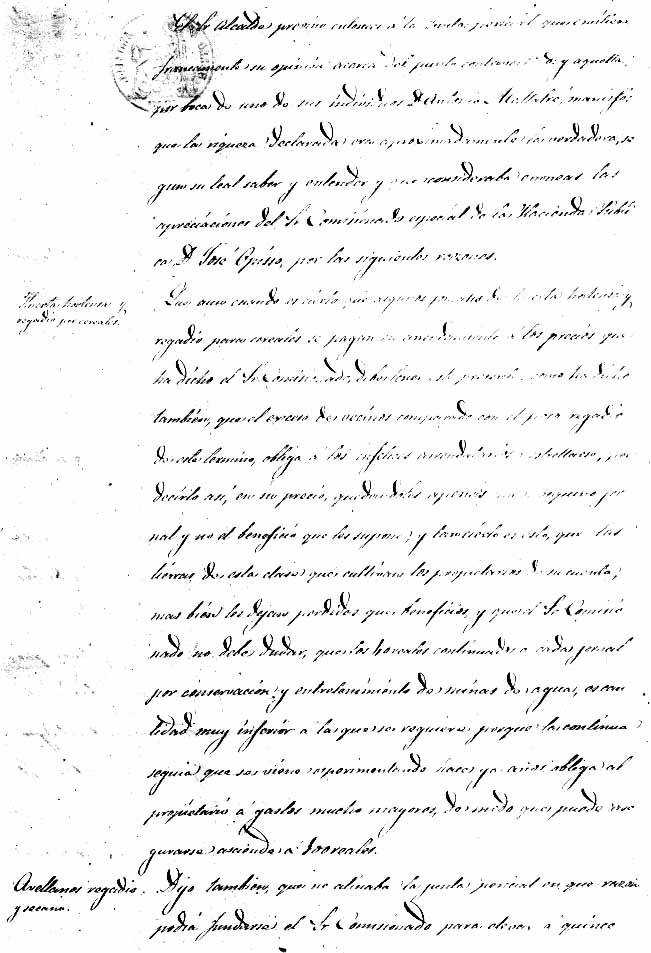 El Sr Alcalde previno entonces á la Junta pericial que emitiese
francamente su opinión acerca del punto y aquella,
por boca de uno de sus individuos Dn Antonio manifestó
que la riqueza declarada era aproximadamente la verdadera, se
gun su leal saber y entender y que consideraba erroneas las
apreciaciones del Sr Comisionado especial de la Hacienda Públi
ca Dn José Opisso, por las siguientes razones.
Huerta hortense y
regadio por cereales.
Que aun cuando es cierto que algunos de huerta hortense y
regadio para cereales se pagan en arrendamiento á los precios que
ha dicho el Sr Comisionado, debe tener presente como ha dicho
tambien, que el exceso de vecinos comparado con el poco regadio
de este termino, obliga á los infelices arrendatarios por
decirlo así, en su precio, quedandoles apenas un pequeno jor
nal y no el beneficio que les supone; y tan cierto es esto, que las
tierras de esta clase que cultivan los propietarios de su cuenta,
mas bien les dejan perdidas que beneficios, y que el Sr Comisio
nado no debe dudar, que los reales continuados a cada jornal
por conservación y entretenimiento de minas de agua, es can
tidad muy inferior á la que se requiere porque la continua
sequia que se viene experimentando hace ya años obliga al
propietario á gastos mucho mayores, de modo que puede ase
gurarse asciende á reales.
Avellanos regadio
y secano.
Dijo tambien, que no atinaba la junta pericial en que razon
podia fundarse el Sr Comisionado para elevar á quince